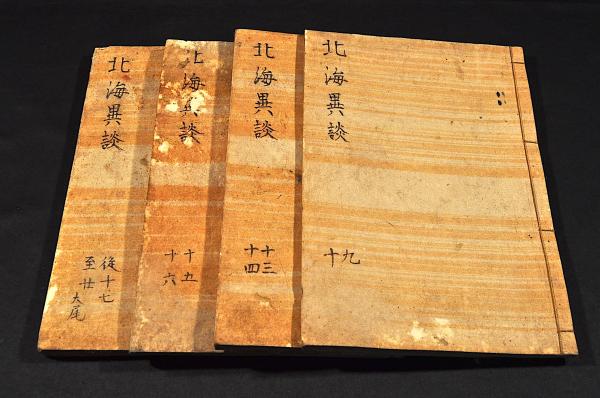 北海異談
九
十
北海異談
十三
十四
北海異談
十五
十六
北海異談
從十七
至廿大尾